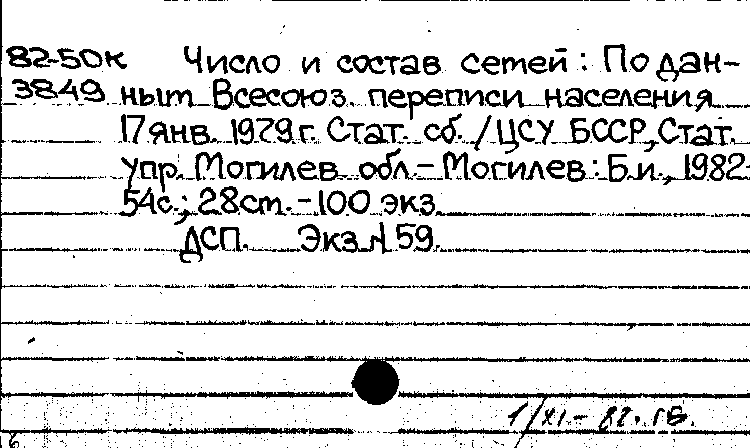 82-50к Число и состав сетей: По дан-
3849 ныт Всесоюз. переписи населения
17 янв. 1979 г. Стат. сб. / ЦСУ БССР, Стат.
упр. Могилев. обл. - Могилев: Б.и., 1982
54с.; 28 ст. - 100 экз.
ДСП. Экз. N 59.
1/XI - 82.
6